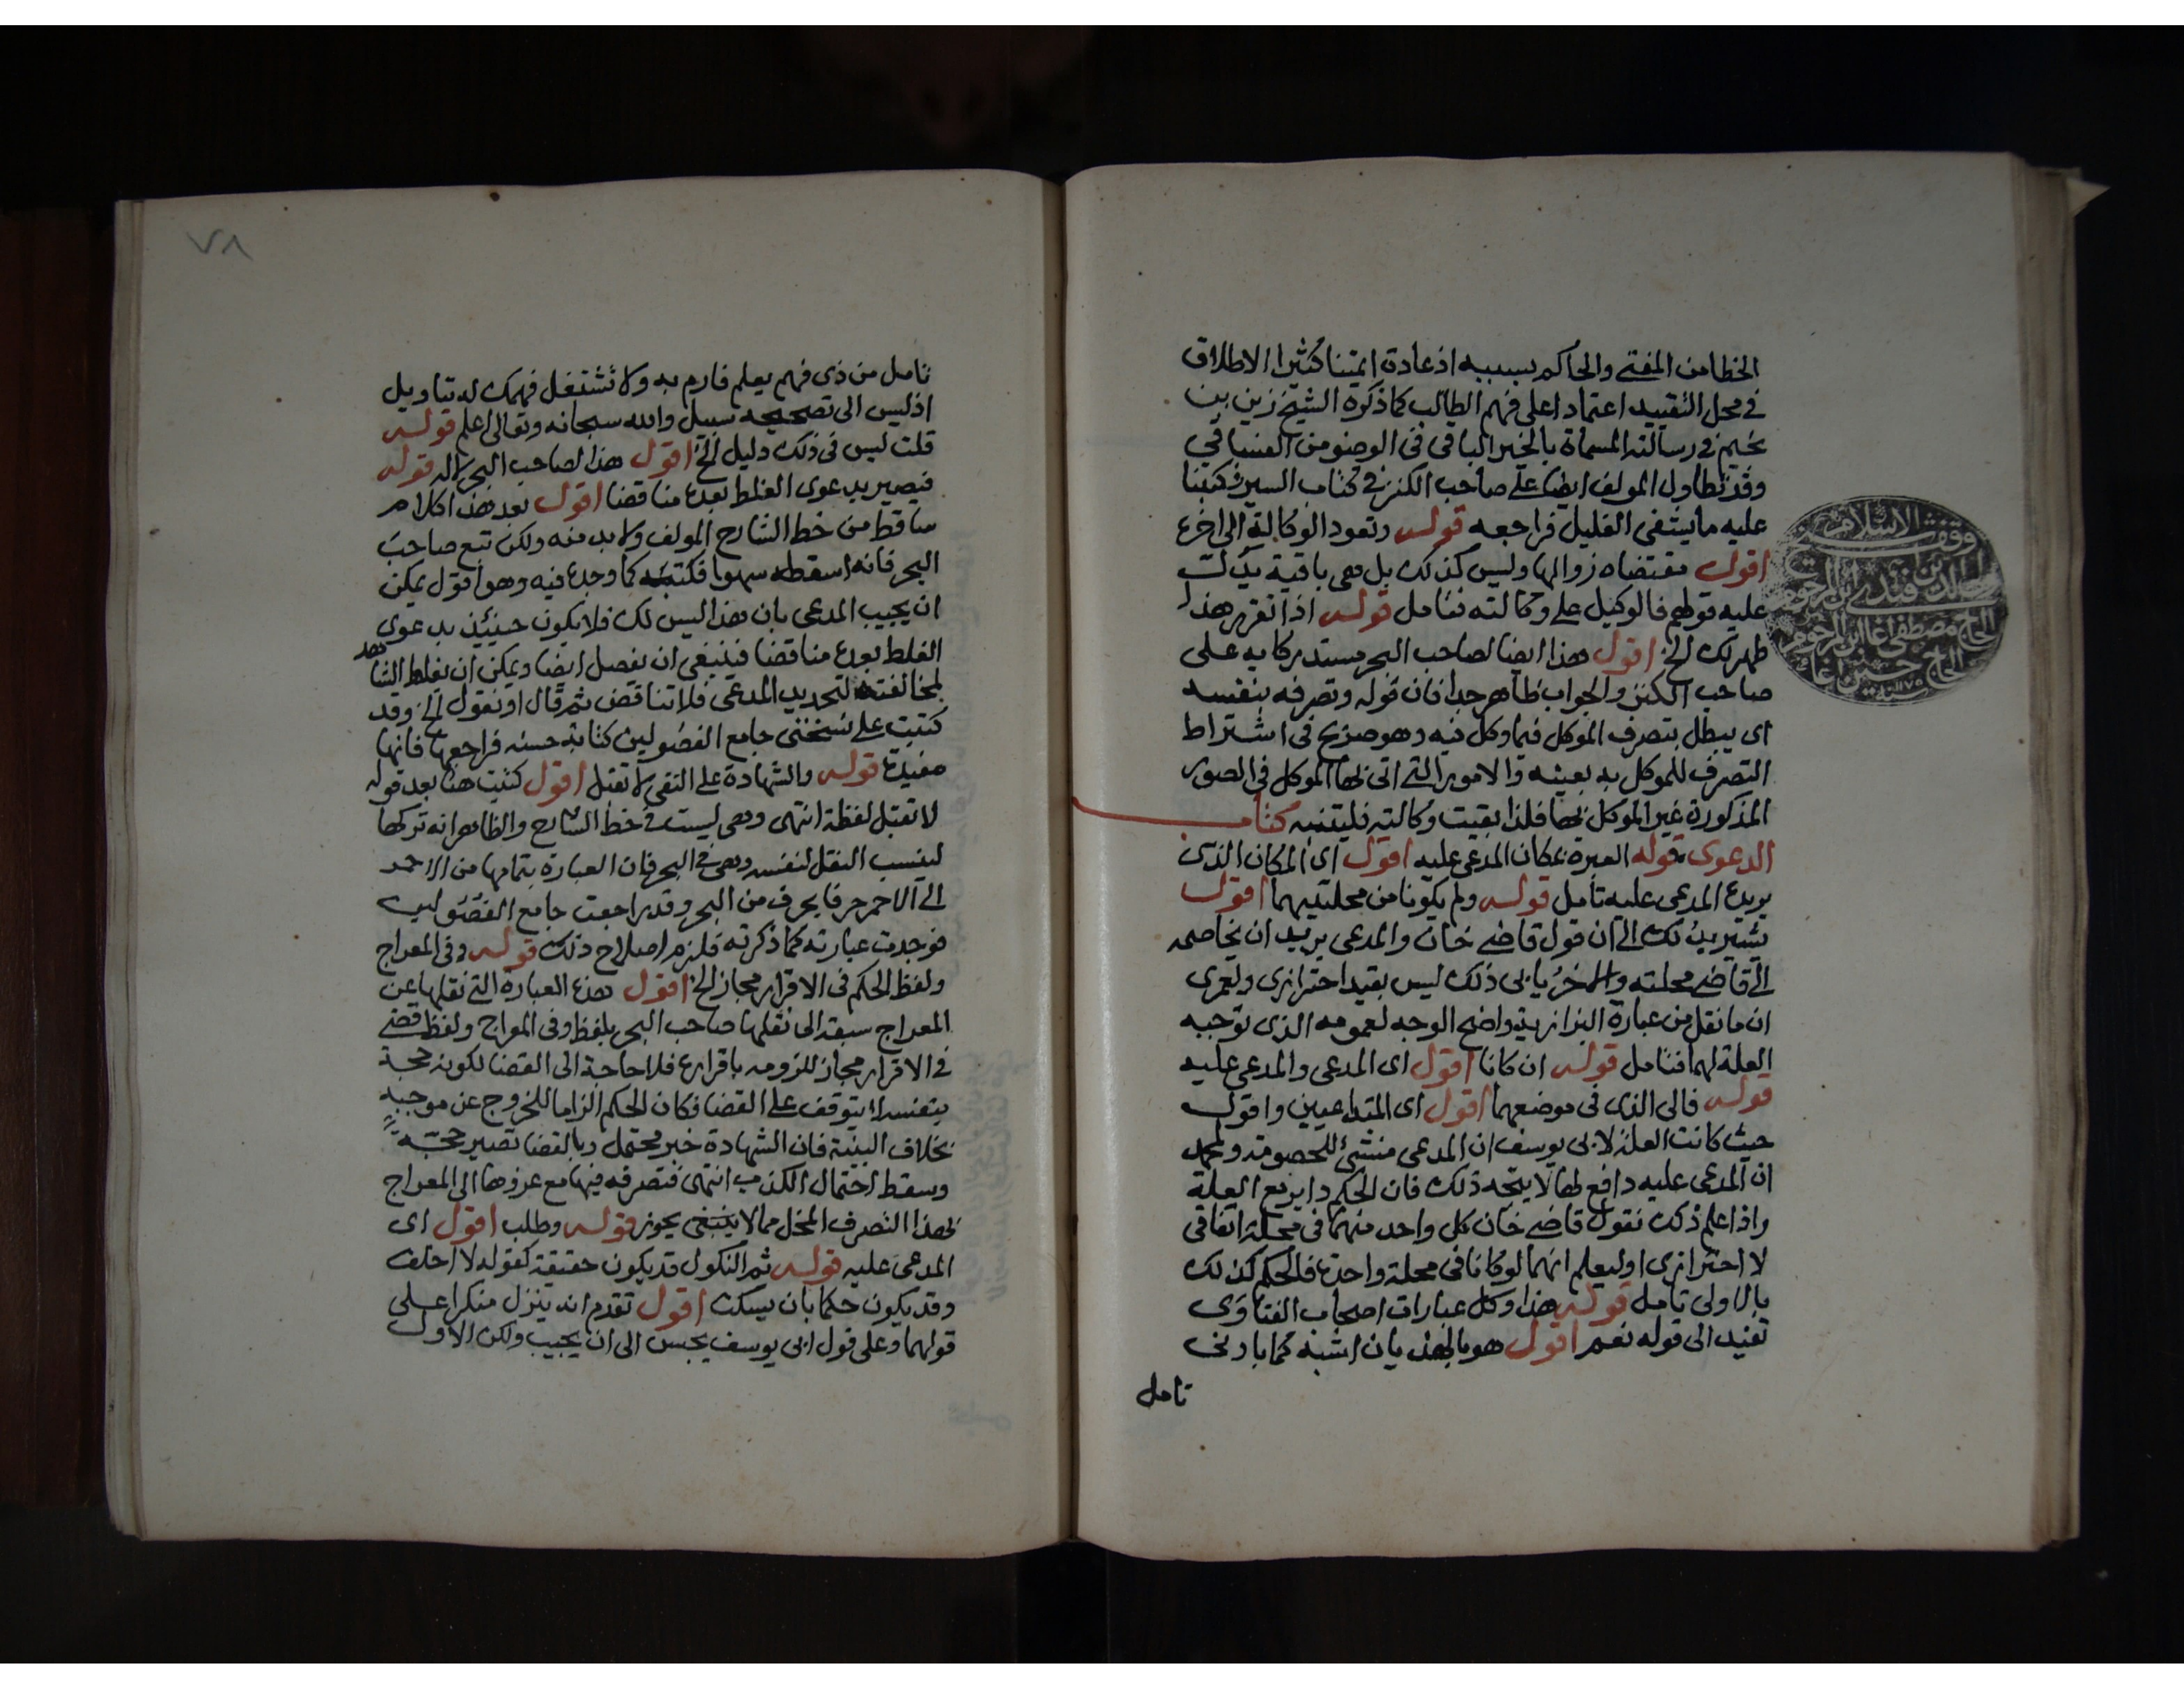 الخطا من المفتي والحاكم بسببه اذ عادة ايمتنا كثيرا الاطلاق
في محل التقييد اعتمادا على فهم الطالب كما ذكره الشيخ زين بن
نجيم في رسالته المسماة بالخير الباقي في الوضو من الفساقي
وقد تطاول المولف ايضا على صاحب الكنز في كتاب السير وكتبنا
عليه ما يشفى الغليل فراجعه قوله وتعود الوكالة الى اخره
اقول مقتضاه زوالها وليس كذلك بل هى باقية يدلك
عليه قولهم فالوكيل على وكالته فتامل قوله اذا تقرر هذا
ظهر لك الخ اقول هذا ايضا لصاحب البحر مستدركا به على
صاحب الكنز والجواب ظاهر جدا فان قوله وتصرفه بنفسه
اى يبطل بتصرف الموكل فيما وكل فيه وهو صريح فى اشتراط
التصرف للموكل به بعينه والامور التي اتى بها الموكل في الصور
المذكورة غير الموكل بها فلذا بقيت وكالته فليتنبه كتاب
الدعوى قوله العبرة بمكان المدعى عليه اقول اى المكان الذى
يريده المدعى عليه تامل قوله ولم يكونا من محلتيهما اقول
يشير بذلك الى ان قول قاضي خان والمدعى يريد ان يخاصمه
الى قاضي محلته والاخر يابى ذلك ليس بقيد احترازى ولعمرى
ان ما نقل من عبارة البزازية واضح الوجه لعمومه الذى توجبه
العلة لهما فتامل قوله ان كانا اقول اى المدعى والمدعى عليه
قوله فالى الذى فى موضعهما اقول اى المتداعيين واقول
حيث كانت العلة لابى يوسف ان المدعى منشئ للخصومة ولمحمد
ان المدعى عليه دافع لها لا يتجه ذلك فان الحكم داير مع العلة
واذا علم ذلك نقول قاضي خان كل واحد منهما فى محلة اتفاقى
لا احترازى او ليعلم انهما لو كانا فى محلة واحدة فالحكم كذلك
بالاولى تامل قوله هذا وكل عبارات اصحاب الفتاوى
تفيد الى قوله نعم اقول هو بالهذيان اشبه كما بادنى
تامل
٧٨
تامل من ذى فهم يعلم فارم به ولا تشتغل فهمك له بتاويل
اذ ليس الى تصحيحه سبيل والله سبحانه وتعالى اعلم قوله
قلت ليس فى ذلك دليل الخ اقول هذا لصاحب البحر قوله
فيصير بدعوى الغلط بعده مناقضا اقول بعد هذا كلام
ساقط من خط الشارح المولف ولا بد منه ولكن تبع صاحب
البحر فانه اسقطه سهوا فكتبه كما وجده فيه وهو اقول يمكن
ان يجيب المدعى بان هذا ليس لك فلا يكون حينئذ بدعوى
الغلط بعده مناقضا فينبغى ان يفصل ايضا ويمكن ان يغلط الشاهد
لمخالفته لتحديد المدعى فلا تناقض ثم قال او نقول الخ وقد
كتبت على نسختى جامع الفصولين كتابة حسنه فراجعها فانها
مفيدة قوله والشهادة على النفى لا تقبل اقول كتبت هنا بعد قوله
لا تقبل لفظة انتهى وهى ليست في خط الشارح والظاهر انه تركها
لينسب النقل لنفسه وهى في البحر فان العبارة بتمامها من الاحمر
الى الاحمر حرفا بحرف من البحر وقد راجعت جامع الفصولين
فوجدت عبارته كما ذكرته فلزم اصلاح ذلك قوله وفى المعراج
ولفظ الحكم فى الاقرار مجاز الخ اقول هذه العبارة التي نقلها عن
المعراج سبقه الى نقلها صاحب البحر بلفظ وفى المعراج ولفظ قضي
في الاقرار مجاز للزومه باقراره فلا حاجة الى القضا لكونه حجة
بنفسه لا يتوقف على القضا فكان الحكم الزاما للخروج عن موجبه
بخلاف البينة فان الشهادة خبر محتمل وبالقضا تصير حجة
وسقط احتمال الكذب انتهى فتصرفه فيها مع عزوها الى المعراج
بهذا التصرف المخل مما لا ينبغى يجوز قوله وطلب اقول اى
المدعى عليه قوله ثم النكول قد يكون حقيقة كقوله لا احلف
وقد يكون حكما بان يسكت اقول تقدم انه ينزل منكرا على
قولهما وعلى قول ابى يوسف يحبس الى ان يجيب ولكن الاول